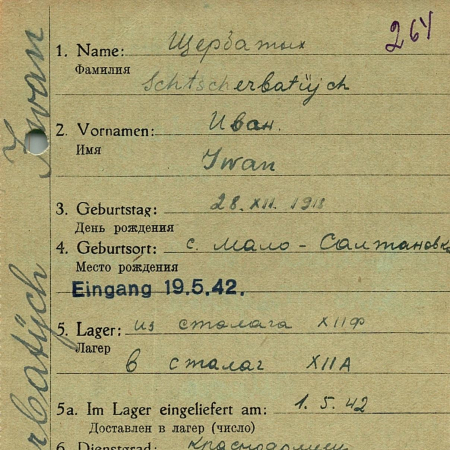 264
1. Name: Щербатых
Фамилия
Schtscherbatüjch
2. Vornamen: Иван.
Имя
Iwan
3. Geburtstag: 28. XII. 1918
День рождения
4. Geburtsort: с. Мало-Салтановка
Место рождения
Eingang 19.5.42.
5. Lager: из сталага XIIФ
Лагер
в сталаг XIIA
5a. Im Lager eingeliefert am: 1. 5. 42
Доставлен в лагер (число)
6. Dienstgrad: Красноармеец
rbatüjch Iwan